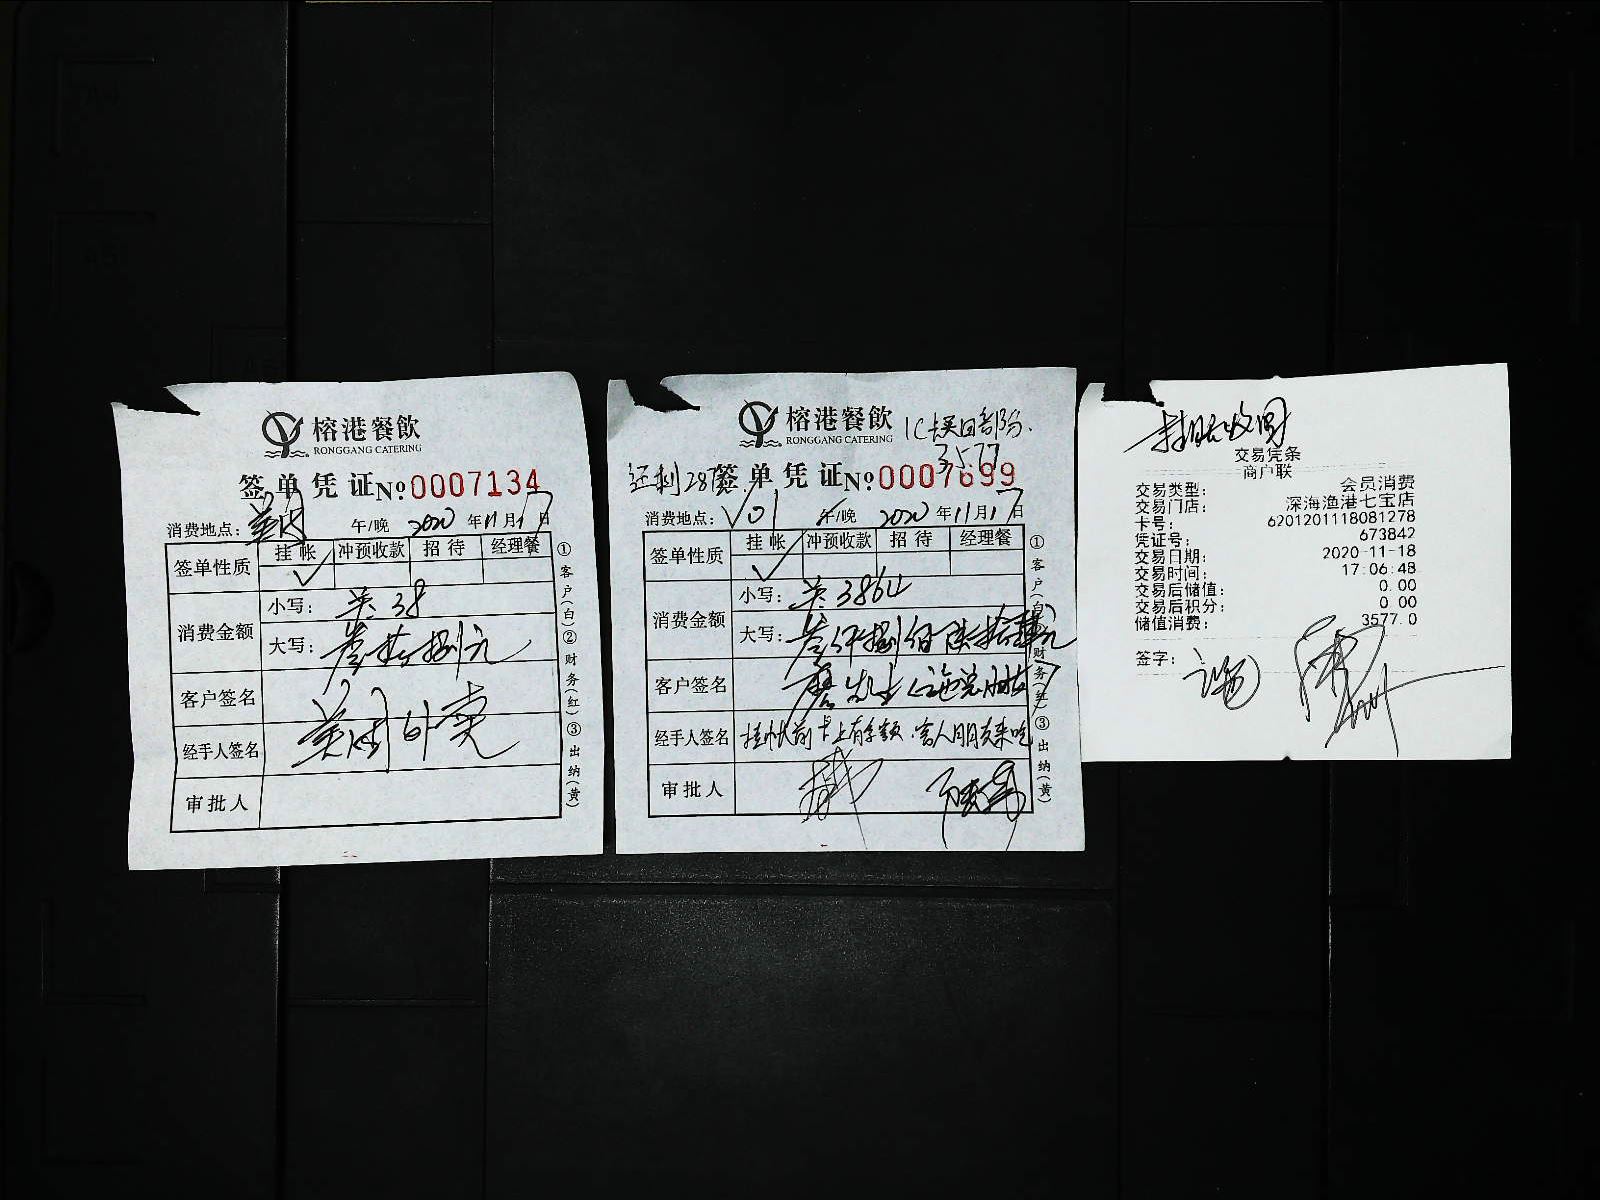 榕港餐飲
RONGGANG CATERING
签单凭证 No 0007134
消费地点: 美团 午/晚 2020年11月17日
签单性质 挂帐 冲预收款 招待 经理餐
✓
消费金额 小写: 38
大写: 叁拾捌元
客户签名
美团外卖
经手人签名
审批人
①客户(白)②财务(红)③出纳(黄)
榕港餐飲
RONGGANG CATERING
IC卡买回部份.
3577
还剩287
签单凭证 No 0007699
消费地点: V01 午/晚 2020年11月17日
签单性质 挂帐 冲预收款 招待 经理餐
✓
消费金额 小写: 3864
大写: 叁仟捌佰陆拾肆元
客户签名
经手人签名 挂帐前卡上有余额.客人朋友来吃
审批人
①客户(白)②财务(红)③出纳(黄)
挂账收回
交易凭条
商户联
交易类型: 会员消费
交易门店: 深海渔港七宝店
卡号: 6201201118081278
凭证号: 673842
交易日期: 2020-11-18
交易时间: 17:06:48
交易后储值: 0.00
交易后积分: 0.00
储值消费: 3577.0
签字: